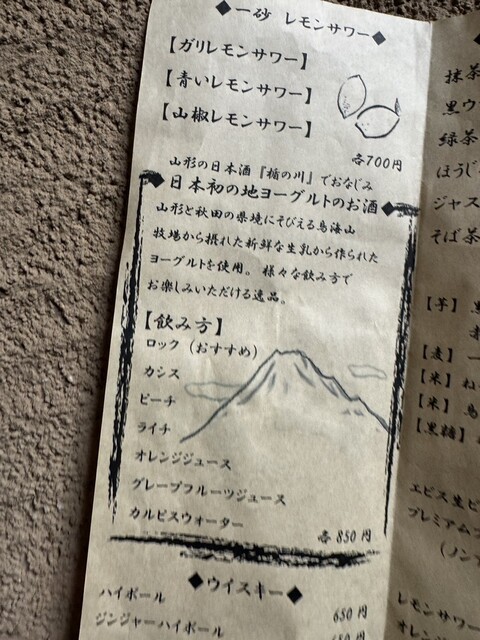 ◆一砂 レモンサワー◆
【ガリレモンサワー】
【青いレモンサワー】
【山椒レモンサワー】
各700円
山形の日本酒『楯の川』でおなじみ
◆日本初の地ヨーグルトのお酒◆
山形と秋田の県境にそびえる鳥海山
牧場から摂れた新鮮な生乳から作られた
ヨーグルトを使用。様々な飲み方で
お楽しみいただける逸品。
【飲み方】
ロック（おすすめ）
カシス
ピーチ
ライチ
オレンジジュース
グレープフルーツジュース
カルピスウォーター
各850円
◆ウイスキー◆
ハイボール 650円
ジンジャーハイボール 680円
抹茶
黒ウ
緑茶
ほうじ
ジャス
そば茶
【芋】
【麦】
【米】ね
【米】鳥
【黒糖】
エビス生ビ
プレミアム
（ノン
レモンサワー